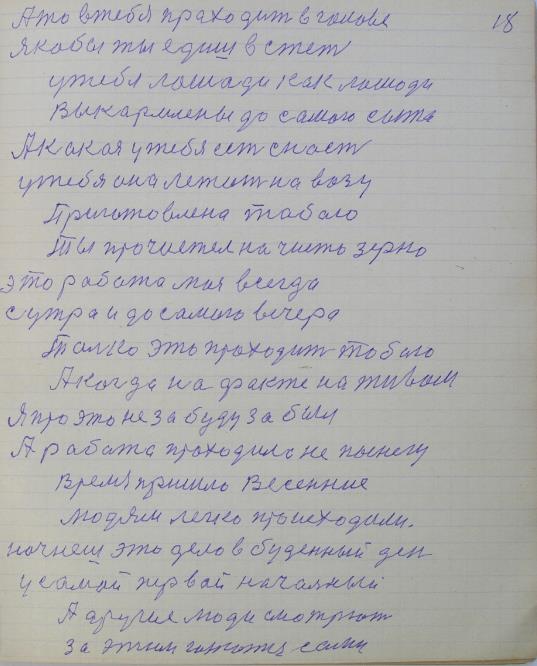 А то втебя праходит в голове 18
якобы ты едиш в степ
утебя лошади как лошоди
Выкармлены до самого сыта
А какая утебя ест снаст
утебя она лежит на возу
Приготовлена тобою
Ты прочистел на чисто зерно
это работа моя всегда
сутра и до самого вечера
Толко это проходит тобою
А когда на факте на живом
Я про это не забуду забыл
А работа проходила не
Время пришло Весенние
людям легко происходили.
начнеш это дело в буденный ден
у самой первай началный
А другие люди смотрют
за этим сами